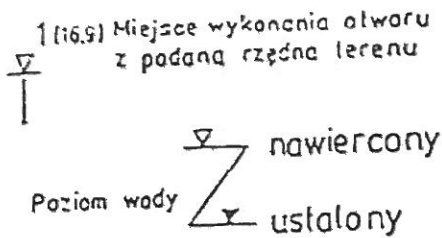 1 (16,9) Miejsce wykonania otworu
z podaną rzędną terenu
nawiercony
Poziom wody
ustalony